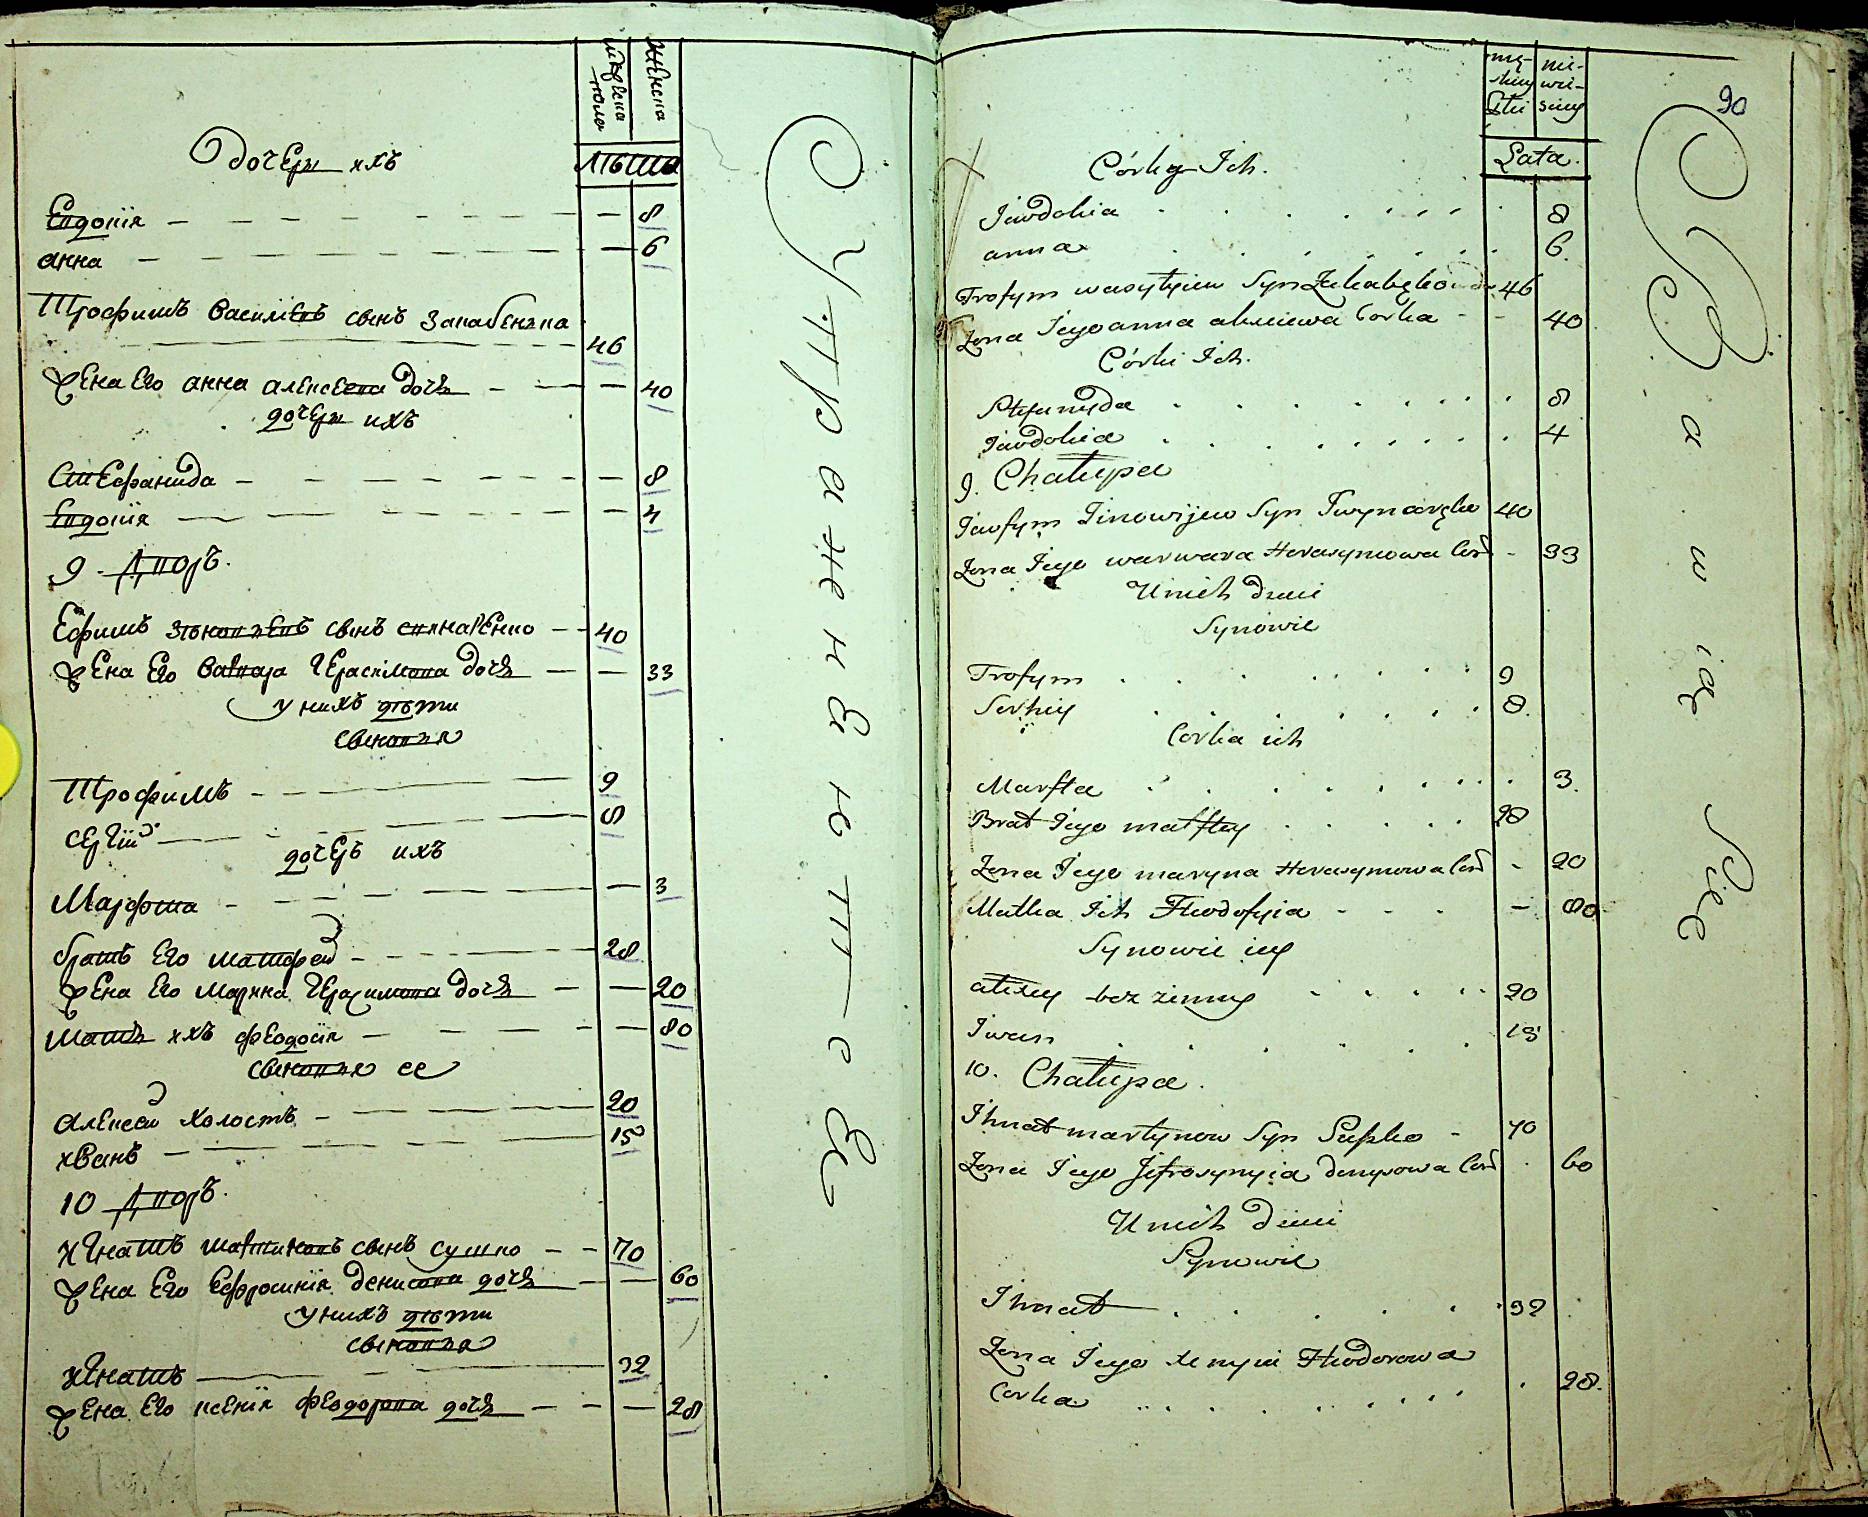 мужеска пола
женска
лѣта
дочеры ихъ
Евдокія 8
анна 6
Трофимъ Василіевъ сынъ
46
жена Его анна алексеева дочь 40
дочеры ихъ
Стефанида 8
Евдокія 4
9 Дворъ.
Ефимъ Зѣновіевъ сынъ 40
жена Его Варвара Герасімова дочь 33
у нихъ дѣти
сыновья
Трофимъ 9
Сергій 8
дочерь ихъ
Марфта 3
братъ Его матфей 28
жена Его Марина Герасимова дочь 20
мать ихъ феодосія 80
сыновья ее
алексей холостъ 20
иванъ 15
10 Дворъ.
игнатъ мартиновъ сынъ сушко 70
жена Его Ефросинія денисова дочь 60
у нихъ дѣти
сыновья
игнатъ 32
жена Его ксенія феодорова дочь 28
У П р а ж н е н і е
90
Lata.
Córky Ich.
Jawdokia 8
anna 6.
Trofym wasylyiew Syn 46
Zona Jego anna alexiewa Corka 40
Córki Ich.
Stefanyda 8
Jawdokia 4
9. Chałupa
Jawfym Zinowijew Syn 40
Zona Jego warwara Herasymowa Cor 33
U nich dzieci
Synowie
Trofym 9
Serhiy 8.
Corka ich
Marfta 3.
Brat Jego matftey 28
Zona Jego maryna Herasymowa Cor 20
Matka Ich Fteodosyia 80.
Synowie iey
alexey bez zienny 20
Jwan 15
10. Chałupa.
Ihnat martynow Syn Suszko 70
Zona Jego Jefrosynyia denysowa Cor 60
U nich dzieci
Synowie
Ihnat 32
Zona Jego xenyia Fteodorowa
Corka 28.